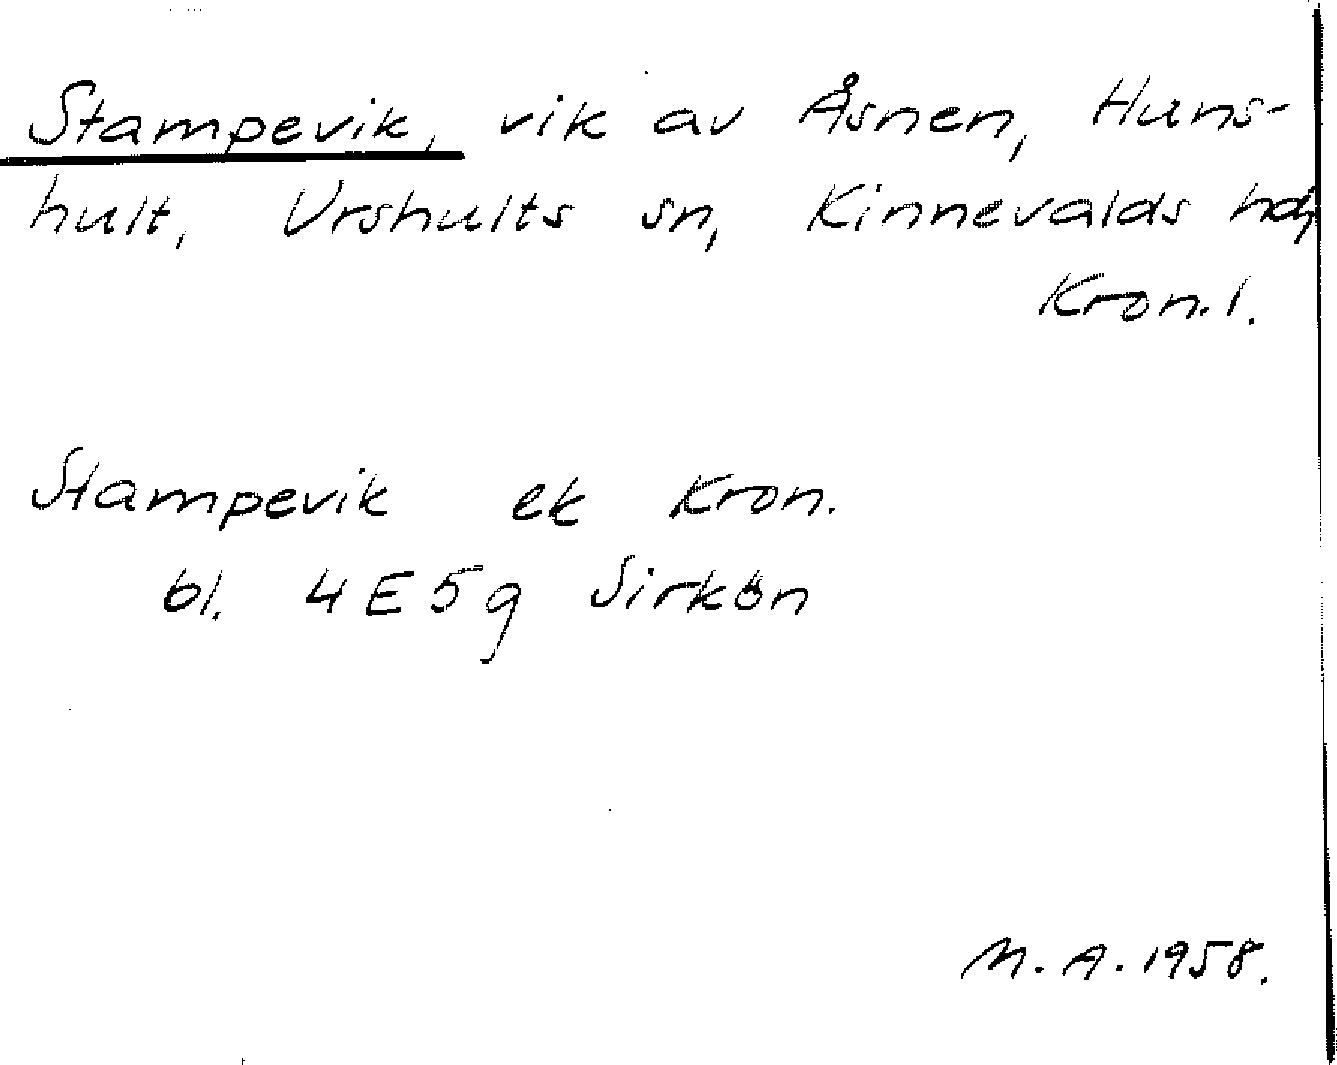 Stampevik, vik av Åsnen, Huns-
hult, Urshults sn, Kinnevalds hd,
Kron. l.
Stampevik ek Kron.
bl. 4E5g Sirkön
M.A. 1958.